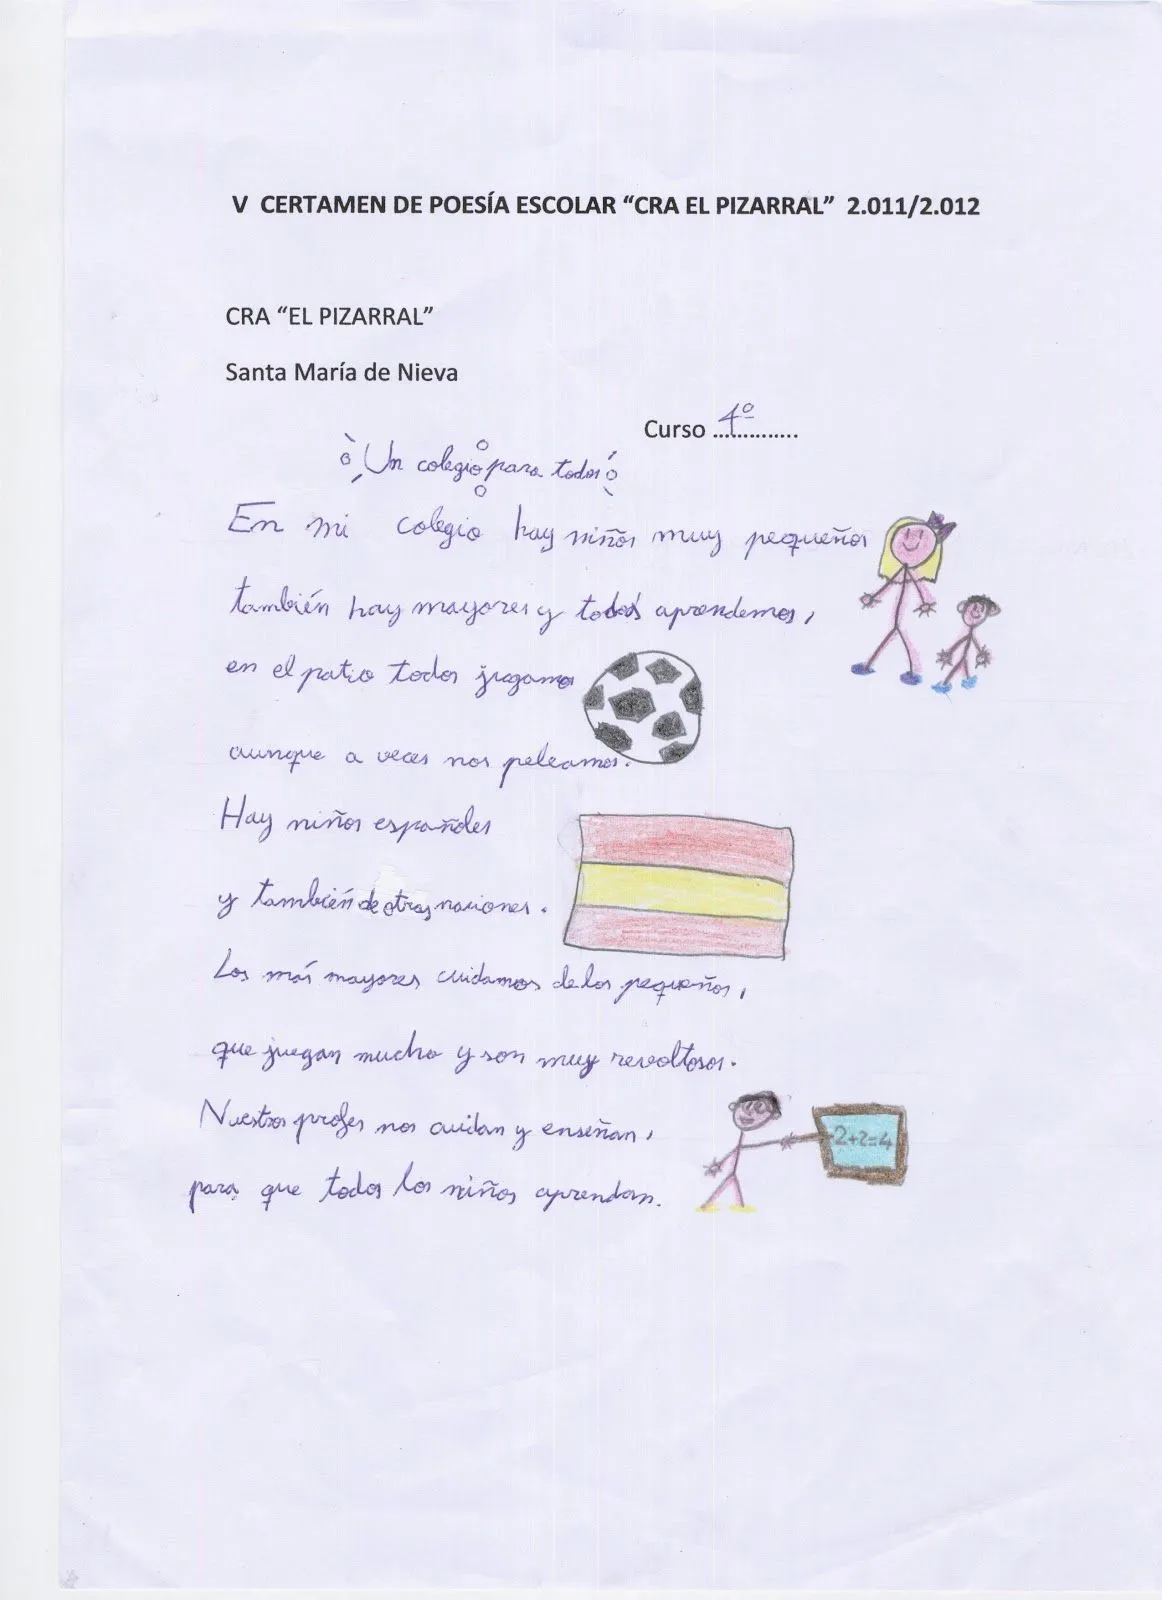 V CERTAMEN DE POESÍA ESCOLAR “CRA EL PIZARRAL” 2.011/2.012
CRA “EL PIZARRAL”
Santa María de Nieva
Curso 4º
Un colegio para todos
En mi colegio hay niños muy pequeños
también hay mayores y todos aprendemos,
en el patio todos jugamos
aunque a veces nos peleamos.
Hay niños españoles
y también de otras naciones.
Los más mayores cuidamos de los pequeños,
que juegan mucho y son muy revoltosos.
Nuestros profes nos cuidan y enseñan,
para que todos los niños aprendan.
2+2=4